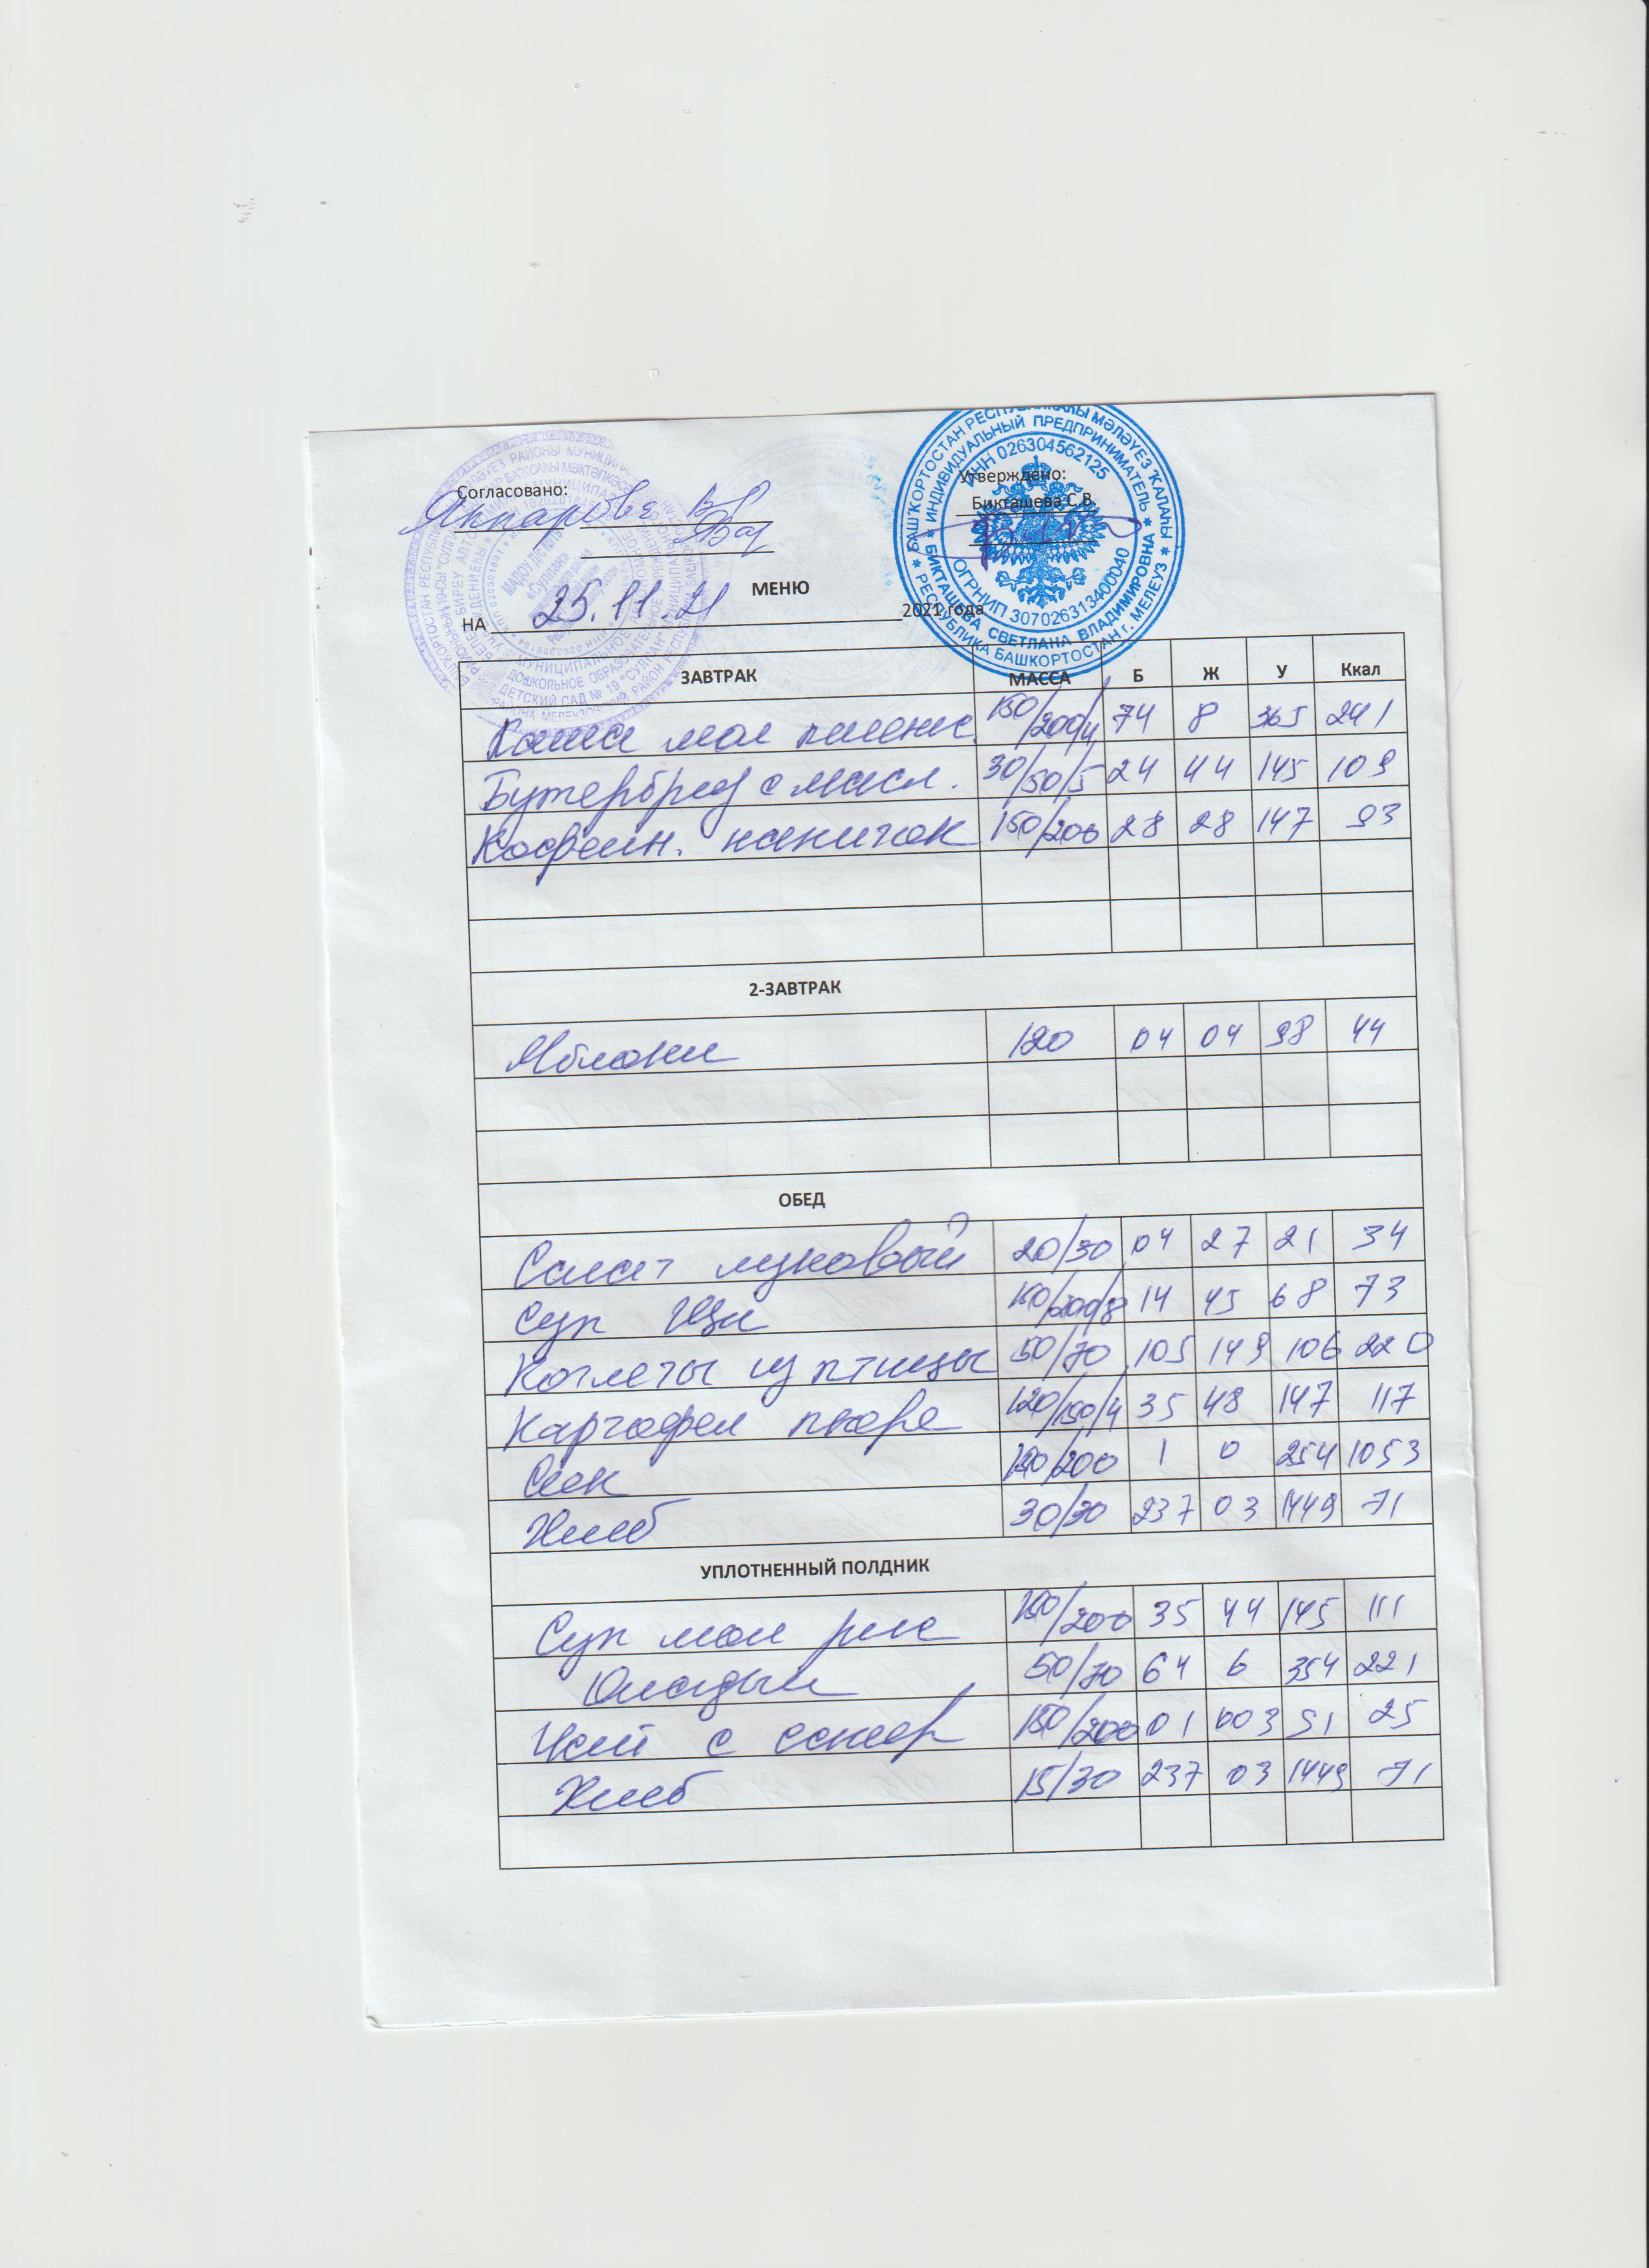 БАШҠОРТОСТАН РЕСПУБЛИКАҺЫ МӘЛӘҮЕЗ ҠАЛАҺЫ
ИНДИВИДУАЛЬНЫЙ ПРЕДПРИНИМАТЕЛЬ
ИНН 026304562125
ОГРНИП 307026313400040
БИКТАШЕВА СВЕТЛАНА ВЛАДИМИРОВНА
РЕСПУБЛИКА БАШКОРТОСТАН г. МЕЛЕУЗ
МАДОУ
«Сулпан»
ДЕТСКИЙ САД № 19 "СУЛПАН"
Согласовано:
Утверждено:
Бикташева С.В.
МЕНЮ
НА 25.11.21 2021 года
ЗАВТРАК МАССА Б Ж У Ккал
Каша мол пшенн. 150/200/4 74 8 365 241
Бутерброд с масл. 30/50/5 24 44 145 109
Кофейн. напиток 150/200 28 28 147 93
2-ЗАВТРАК
Яблоки 120 04 04 98 44
ОБЕД
Салат луковый 20/30 04 27 21 34
Суп Щи 150/200/8 14 45 68 73
Котлеты из птицы 50/70 105 149 106 220
Картофел пюре 120/150/4 35 48 147 117
Сок /200 1 0 254 1053
Хлеб 30/30 237 03 1449 71
УПЛОТНЕННЫЙ ПОЛДНИК
Суп мол рис 150/200 35 44 145 111
Оладьи 50/70 64 6 354 221
Чай с сахар 150/200 01 003 51 25
Хлеб 15/30 237 03 1449 71